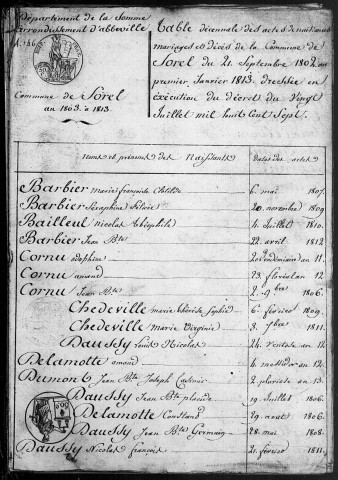 Département de la Somme
arrondissement d'abbeville
Commune de Sorel
an 1803 à 1813.
Table décennale des actes de naissances
mariages et décès de la Commune de
Sorel du 21 Septembre 1802 au
premier Janvier 1813. dressée en
exécution du décret du Vingt
Juillet mil huit Cent Sept.
Noms et prénoms des Naissants
Dates des actes
Barbier marie françoise Clotilde 6. mai 1807.
Barbier Séraphine Silvie 20. novembre 1809
Bailleul nicolas théophile 4. Juillet 1810.
Barbier Jean Bte 22. avril 1812
Cornu adolphine an 11.
Cornu amand 23. floréal an 12
Cornu Jean Bte 2. 9bre 1806.
Chedeville marie thérèse Sophie 6. février 1809.
Chedeville marie Virginie 3. 7bre 1811.
Daussy Louis Nicolas 24. Ventose an 12.
Delamotte amand 4. messidor an 12.
Dumont Jean Bte Joseph Casimir 2. pluviose an 13.
Daussy Jean Bte placide 19 Juillet 1806.
Delamotte Constant 29. aout 1806.
Daussy Jean Bte Germain 28. mai 1808.
Daussy Nicolas françois 21. février 1811.